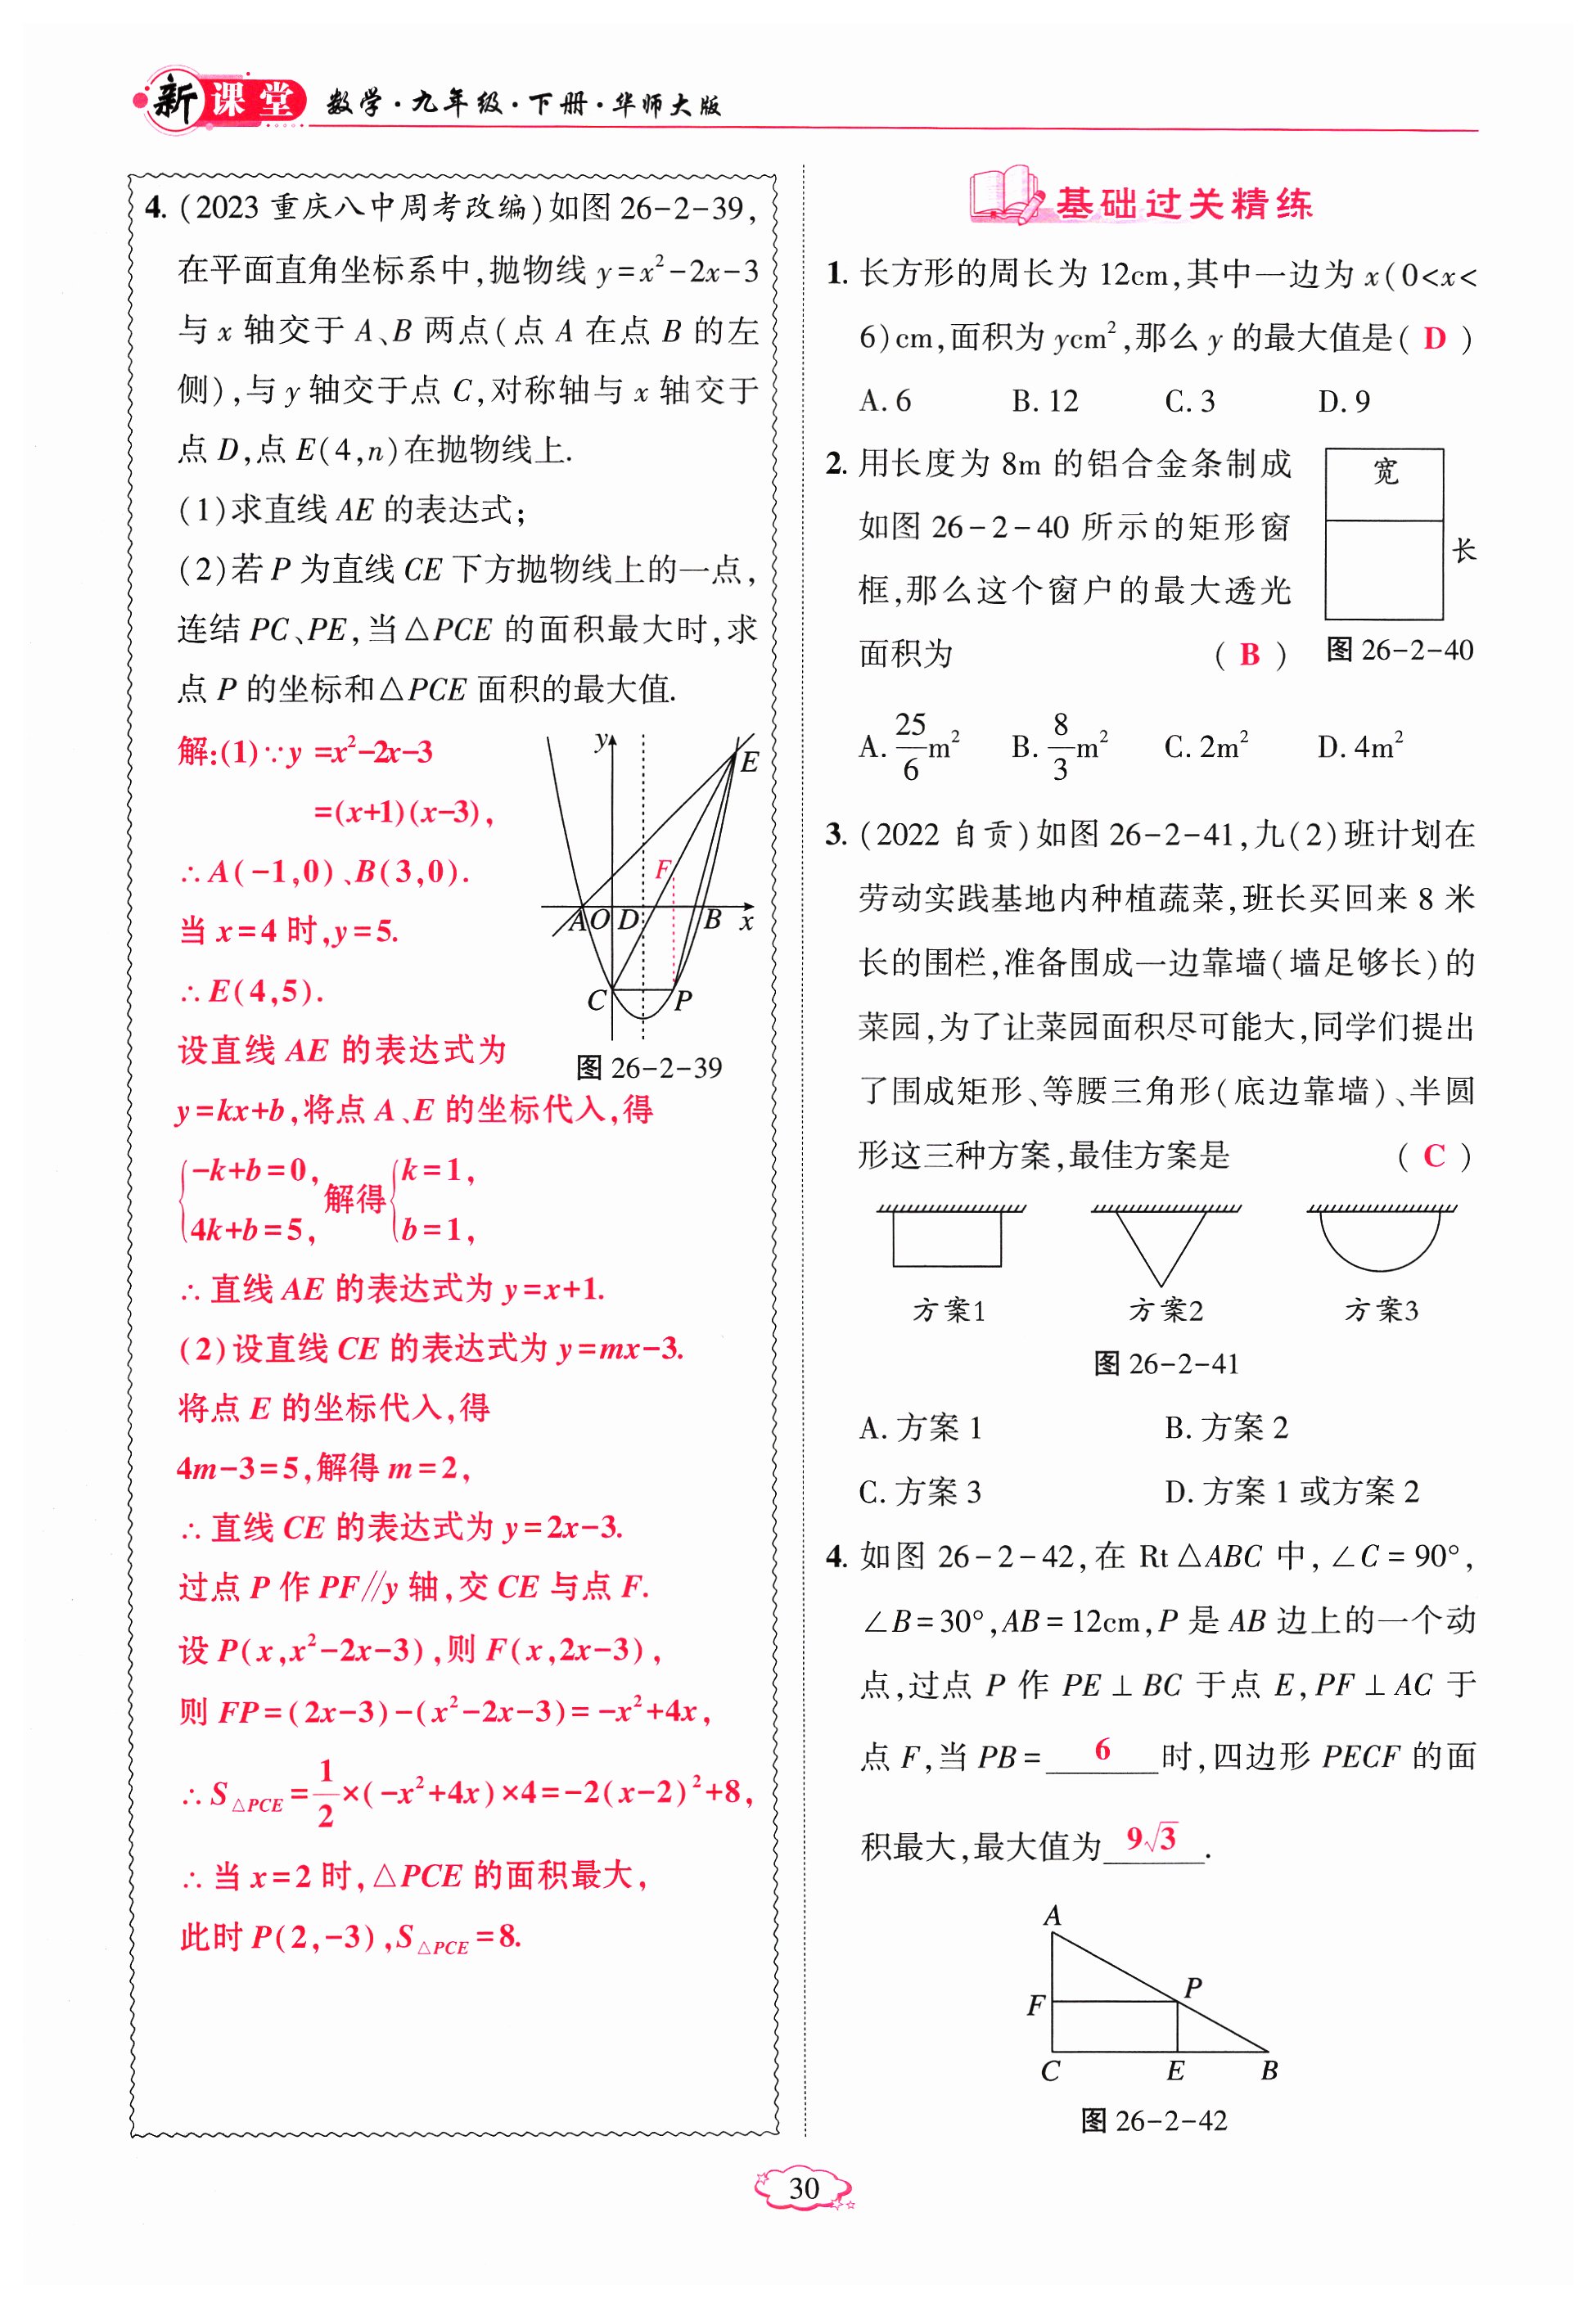 新课堂 数学·九年级·下册·华师大版
4. (2023 重庆八中周考改编)如图 26-2-39,
在平面直角坐标系中,抛物线 y=x²-2x-3
与 x 轴交于 A、B 两点(点 A 在点 B 的左
侧),与 y 轴交于点 C,对称轴与 x 轴交于
点 D,点 E(4,n)在抛物线上.
(1)求直线 AE 的表达式;
(2)若 P 为直线 CE 下方抛物线上的一点,
连结 PC、PE,当△PCE 的面积最大时,求
点 P 的坐标和△PCE 面积的最大值.
解:(1)∵y =x²-2x-3
=(x+1)(x-3),
∴A(-1,0)、B(3,0).
当 x=4 时,y=5.
∴E(4,5).
设直线 AE 的表达式为
y=kx+b,将点 A、E 的坐标代入,得
{-k+b=0, 解得 {k=1,
4k+b=5, b=1,
∴直线 AE 的表达式为 y=x+1.
(2)设直线 CE 的表达式为 y=mx-3.
将点 E 的坐标代入,得
4m-3=5,解得 m=2,
∴直线 CE 的表达式为 y=2x-3.
过点 P 作 PF∥y 轴,交 CE 与点 F.
设 P(x,x²-2x-3),则 F(x,2x-3),
则 FP=(2x-3)-(x²-2x-3)=-x²+4x,
∴S△PCE=1/2×(-x²+4x)×4=-2(x-2)²+8,
∴当 x=2 时,△PCE 的面积最大,
此时 P(2,-3),S△PCE=8.
y
E
F
A O D B x
C P
图 26-2-39
基础过关精练
1. 长方形的周长为 12cm,其中一边为 x(0<x<
6)cm,面积为 ycm²,那么 y 的最大值是( D )
A. 6 B. 12 C. 3 D. 9
2. 用长度为 8m 的铝合金条制成
如图 26-2-40 所示的矩形窗
框,那么这个窗户的最大透光
面积为 ( B )
宽
长
图 26-2-40
A. 25/6 m² B. 8/3 m² C. 2m² D. 4m²
3. (2022 自贡)如图 26-2-41,九(2)班计划在
劳动实践基地内种植蔬菜,班长买回来 8 米
长的围栏,准备围成一边靠墙(墙足够长)的
菜园,为了让菜园面积尽可能大,同学们提出
了围成矩形、等腰三角形(底边靠墙)、半圆
形这三种方案,最佳方案是 ( C )
方案1 方案2 方案3
图 26-2-41
A. 方案 1 B. 方案 2
C. 方案 3 D. 方案 1 或方案 2
4. 如图 26-2-42,在 Rt△ABC 中,∠C=90°,
∠B=30°,AB=12cm,P 是 AB 边上的一个动
点,过点 P 作 PE⊥BC 于点 E,PF⊥AC 于
点 F,当 PB= 6 时,四边形 PECF 的面
积最大,最大值为 9√3 .
A
P
F
C E B
图 26-2-42
30